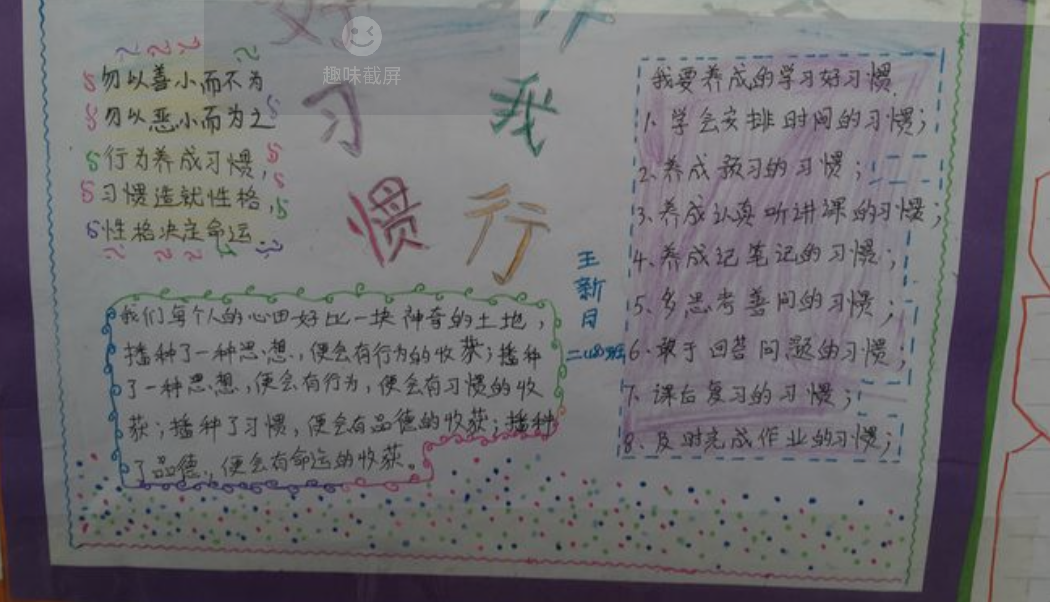 好
趣味截屏
习
惯
我
行
勿以善小而不为
勿以恶小而为之
行为养成习惯,
习惯造就性格,
性格决定命运
我们每个人的心田好比一块神奇的土地,
播种了一种思想,便会有行为的收获;播种
了一种思想,便会有行为,便会有习惯的收
获;播种了习惯,便会有品德的收获;播种
了品德,便会有命运的收获。
王新月
二(四)班
我要养成的学习好习惯
1、学会安排时间的习惯;
2、养成预习的习惯;
3、养成认真听讲课的习惯;
4、养成记笔记的习惯;
5、多思考善问的习惯;
6、敢于回答问题的习惯;
7、课后复习的习惯;
8、及时完成作业的习惯;